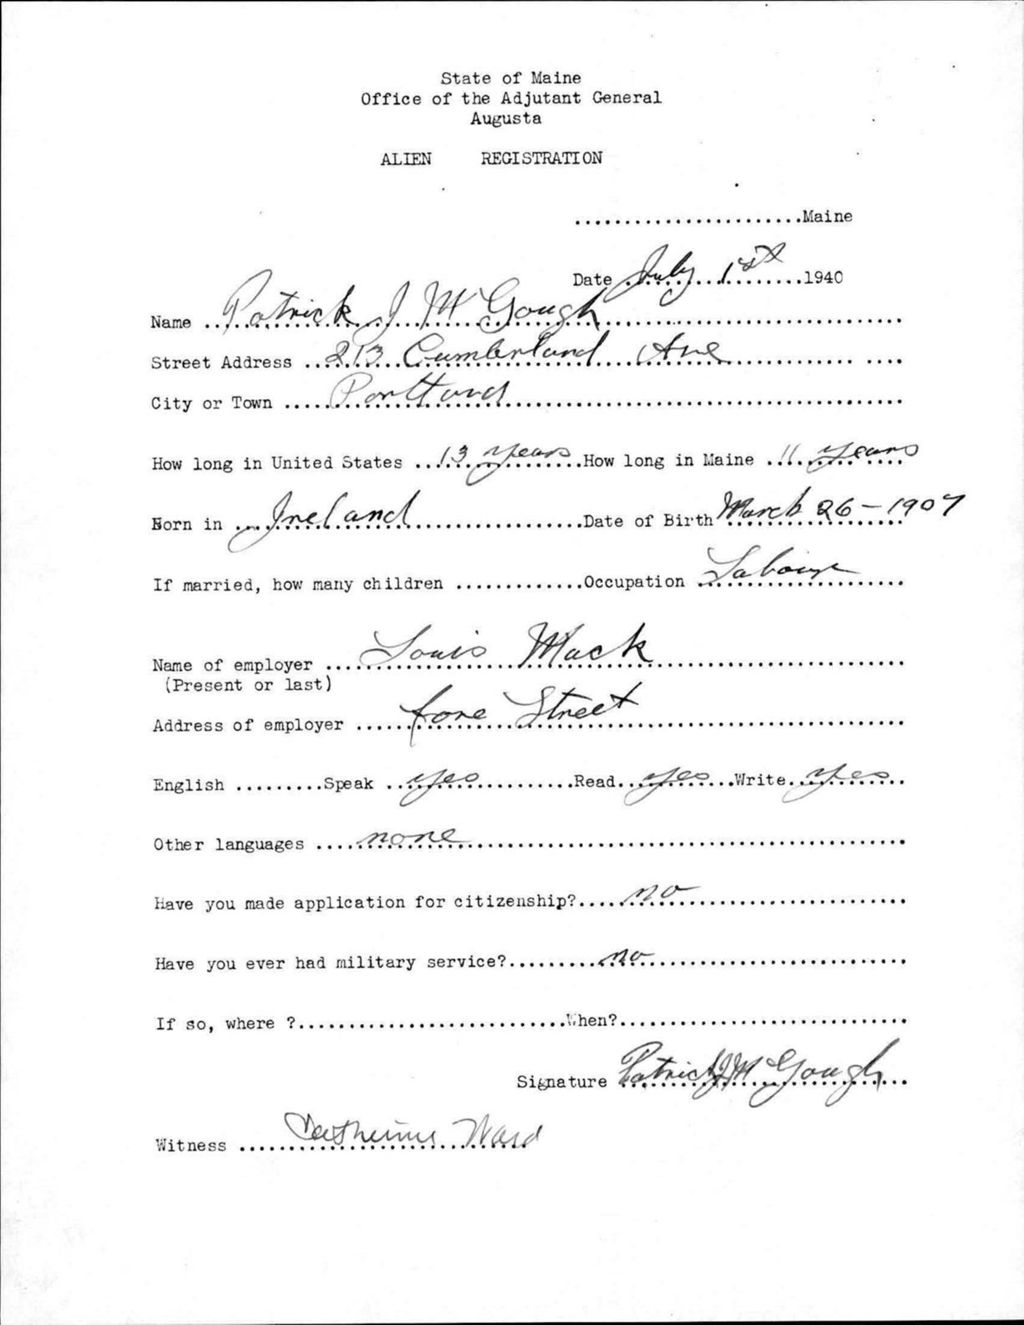 State of Maine
Office of the Adjutant General
Augusta
ALIEN REGISTRATION
.......................Maine
Date July 1st 1940
Name Patrick J McGough
Street Address 213 Cumberland Ave
City or Town Portland
How long in United States 13 years How long in Maine 11 years
Born in Ireland Date of Birth March 26 - 1907
If married, how many children .............Occupation Labour
Name of employer Louis Mack
(Present or last)
Address of employer fore Street
English .........Speak yes Read yes Write yes
Other languages none
Have you made application for citizenship? no
Have you ever had military service? no
If so, where ?...........................When?.............................
Signature Patrick J McGough
Witness Catherine Ward